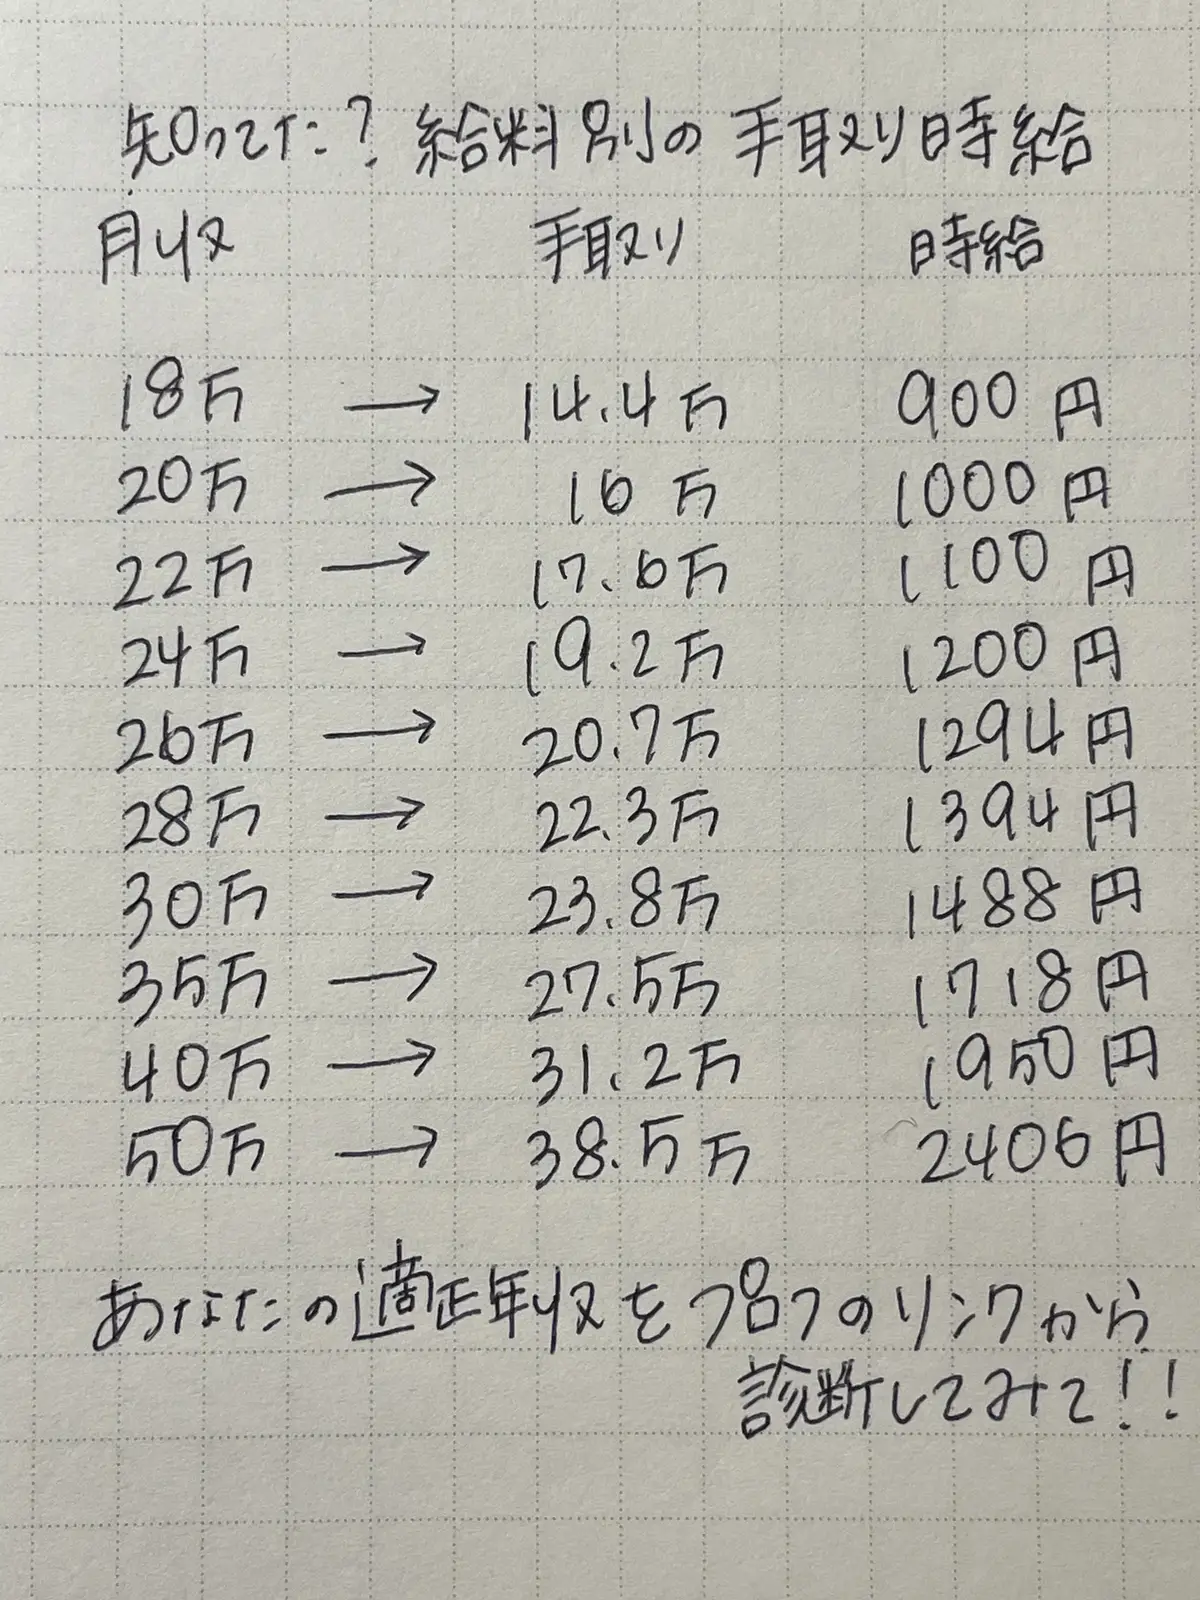 知ってた？給料別の手取り時給
月収 手取り 時給
18万 → 14.4万 900円
20万 → 16万 1000円
22万 → 17.6万 1100円
24万 → 19.2万 1200円
26万 → 20.7万 1294円
28万 → 22.3万 1394円
30万 → 23.8万 1488円
35万 → 27.5万 1718円
40万 → 31.2万 1950円
50万 → 38.5万 2406円
あなたの適正年収をプロフのリンクから
診断してみて！！